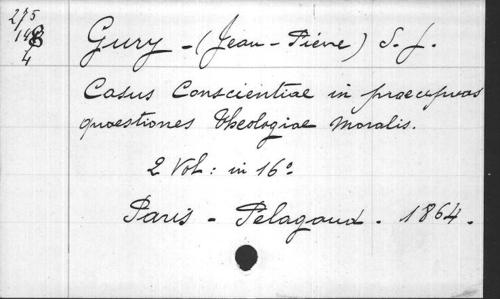 275
148
4
Gury - (Jean-Pierre) S. J.
Casus Conscientiae in praecipuas
quaestiones Theologiae Moralis.
2 Vol: in 16°
Paris - Pelagaud. 1864.